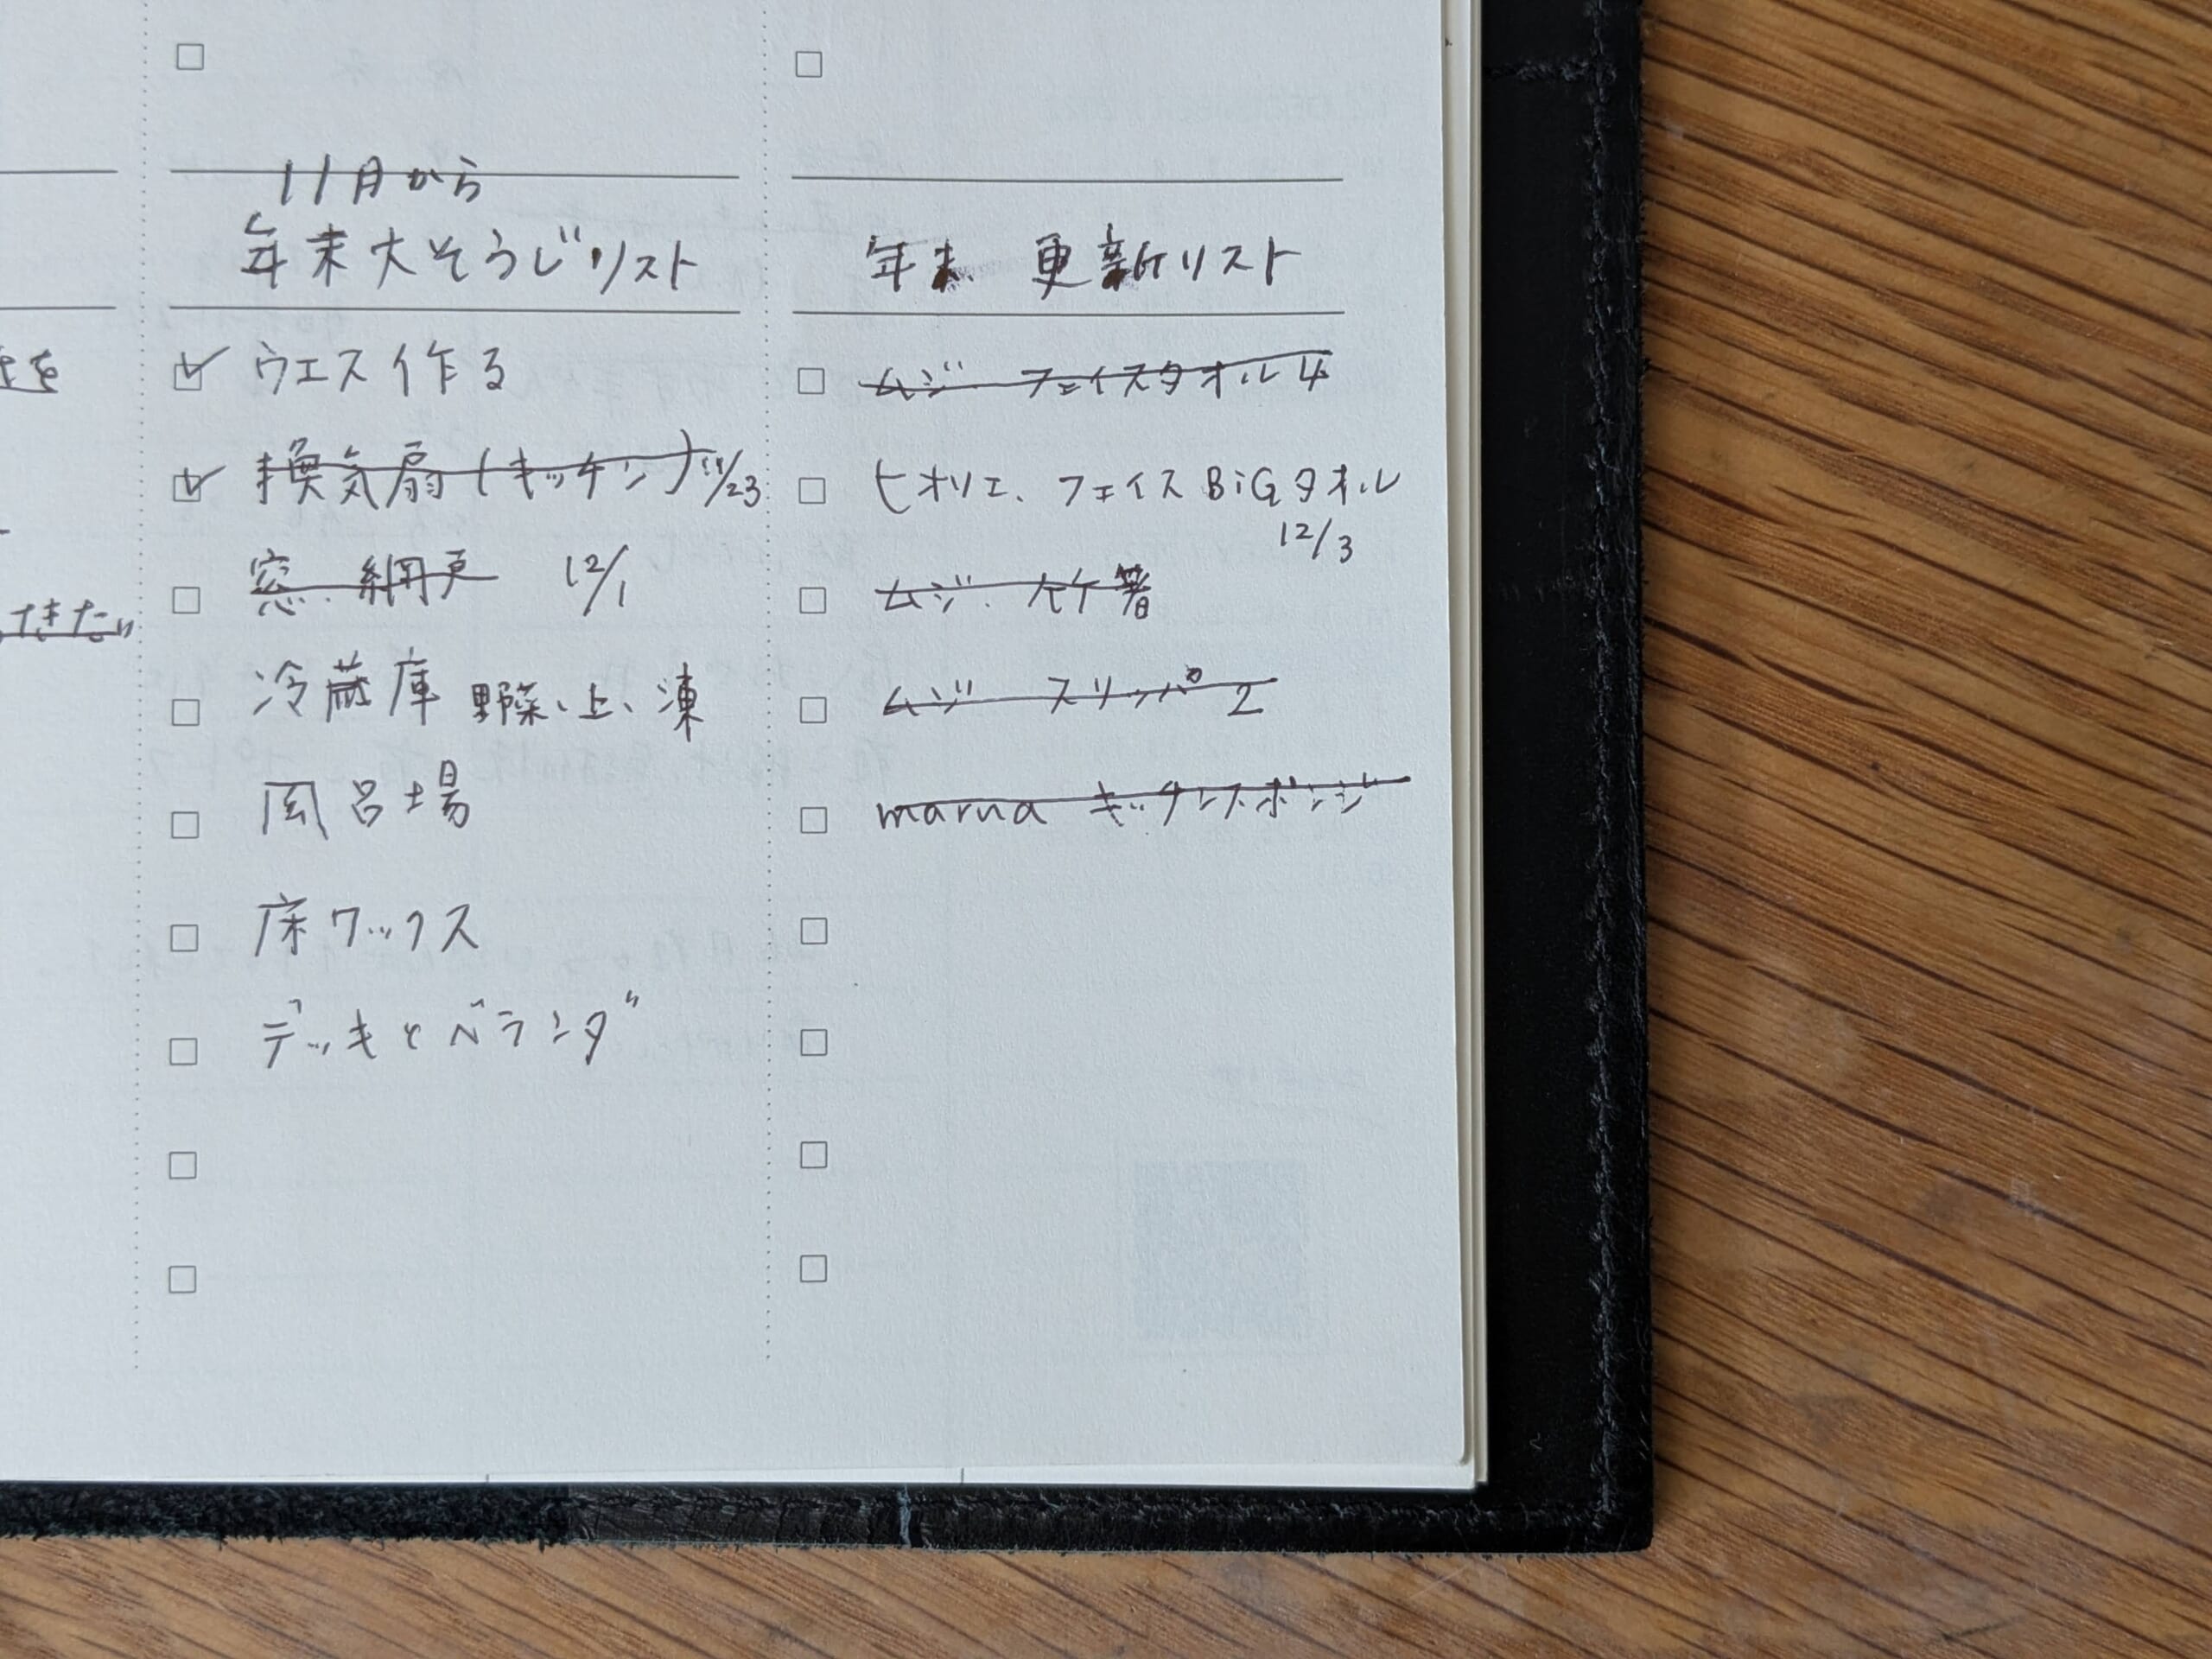 11月から
年末大そうじリスト
ウエス作る
換気扇(キッチン)11/23
窓.網戸 12/1
冷蔵庫 野菜、上、凍
風呂場
床ワックス
デッキとベランダ
年末 更新リスト
ムジ フェイスタオル4
ヒオリエ、フェイスBiGタオル
12/3
ムジ. 竹箸
ムジ スリッパ 2
marna キッチンスポンジ
できたい